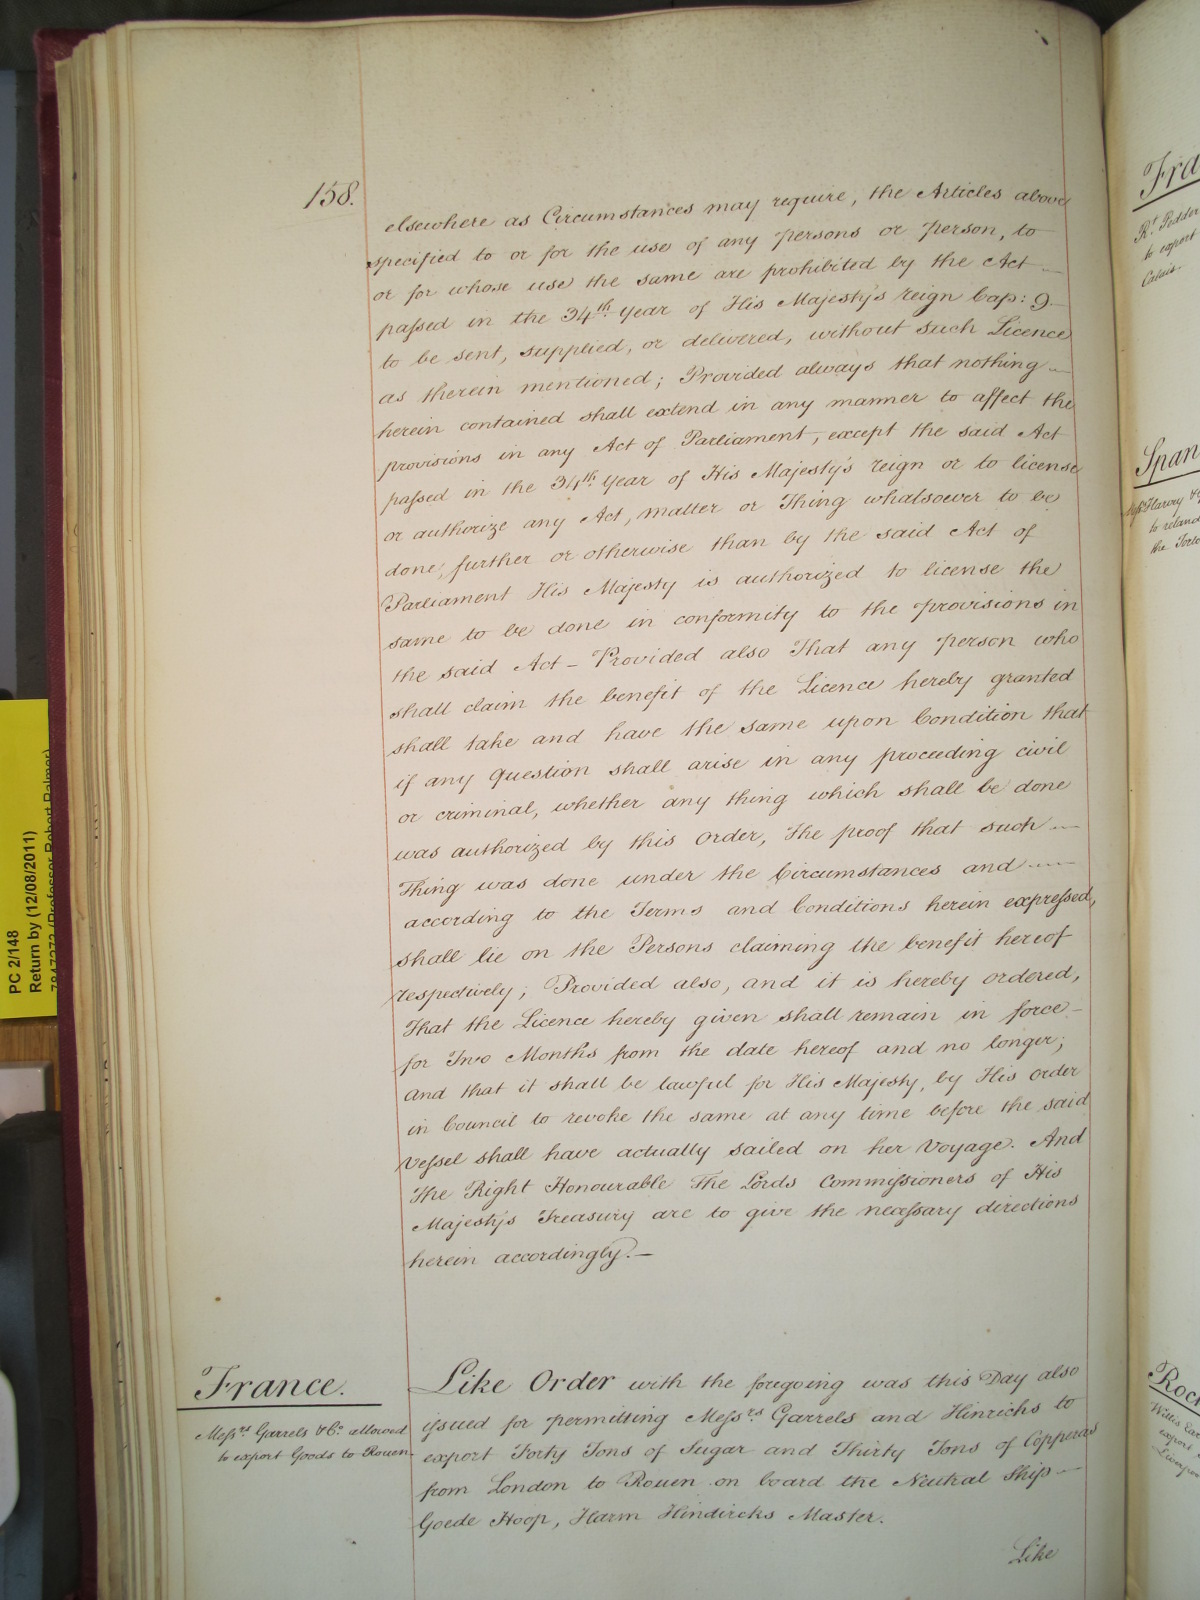 158.
elsewhere as Circumstances may require, the Articles above
specified to or for the use of any persons or person, to
or for whose use the same are prohibited by the Act
passed in the 34th. year of His Majesty's reign Cap: 9.
to be sent, supplied, or delivered, without such Licence
as therein mentioned; Provided always that nothing
herein contained shall extend in any manner to affect the
provisions in any Act of Parliament, except the said Act
passed in the 34th. year of His Majesty's reign or to license
or authorize any Act, matter or Thing whatsoever to be
done, further or otherwise than by the said Act of
Parliament His Majesty is authorized to license the
same to be done in conformity to the provisions in
the said Act – Provided also That any person who
shall claim the benefit of the Licence hereby granted
shall take and have the same upon Condition that
if any question shall arise in any proceeding civil
or criminal, whether any thing which shall be done
was authorized by this order, the proof that such
Thing was done under the Circumstances and
according to the Terms and Conditions herein expressed,
shall lie on the Persons claiming the benefit hereof
respectively; Provided also, and it is hereby ordered,
That the Licence hereby given shall remain in force
for Two Months from the date hereof and no longer;
and that it shall be lawful for His Majesty, by His order
in Council to revoke the same at any time before the said
Vessel shall have actually sailed on her Voyage. And
the Right Honourable The Lords Commissioners of His
Majesty's Treasury are to give the necessary directions
herein accordingly. –
France.
Messrs Garrels & Co. allowed
to export Goods to Rouen.
Like Order with the foregoing was this Day also
issued for permitting Messrs Garrels and Hinrichs to
export Forty Tons of Sugar and Thirty Tons of Copperas
from London to Rouen on board the Neutral Ship
Goede Hoop, Harm Hindircks Master.
Like
PC 2/148
Return by (12/08/2011)
(Professor Robert Palmer)
Fra
Rt. Pedder
to export
Calais
Span
Harvey
to reland
the
Rock
Willis
export